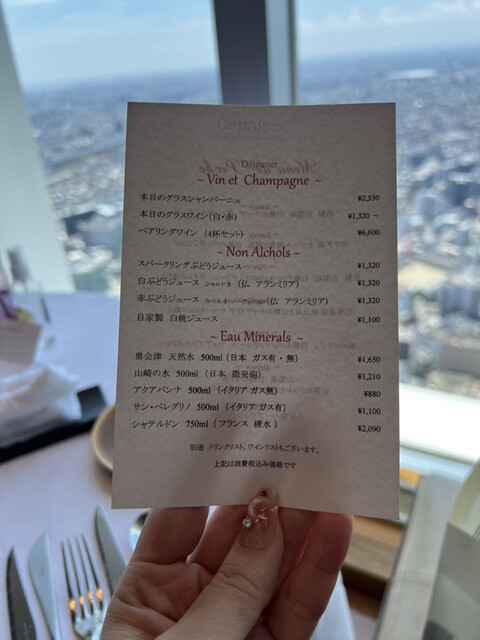 Cépages
Déjeuner
~ Vin et Champagne ~
本日のグラスシャンパーニュ ¥2,530
本日のグラスワイン(白・赤) ¥1,320 ~
ペアリングワイン (4杯セット) ¥6,600
~ Non Alchols ~
スパークリングぶどうジュース ¥1,320
白ぶどうジュース シャルドネ (仏 アランミリア) ¥1,320
赤ぶどうジュース カベルネ・ソーヴィニヨン (仏 アランミリア) ¥1,320
自家製 白桃ジュース ¥1,100
~ Eau Minerals ~
奥会津 天然水 500ml (日本 ガス有・無) ¥1,650
山崎の水 500ml (日本 微発砲) ¥1,210
アクアパンナ 500ml (イタリア ガス無) ¥880
サン・ペレグリノ 500ml (イタリア ガス有) ¥1,100
シャテルドン 750ml (フランス 硬水) ¥2,090
別途 ドリンクリスト、ワインリストもございます。
上記は消費税込み価格です